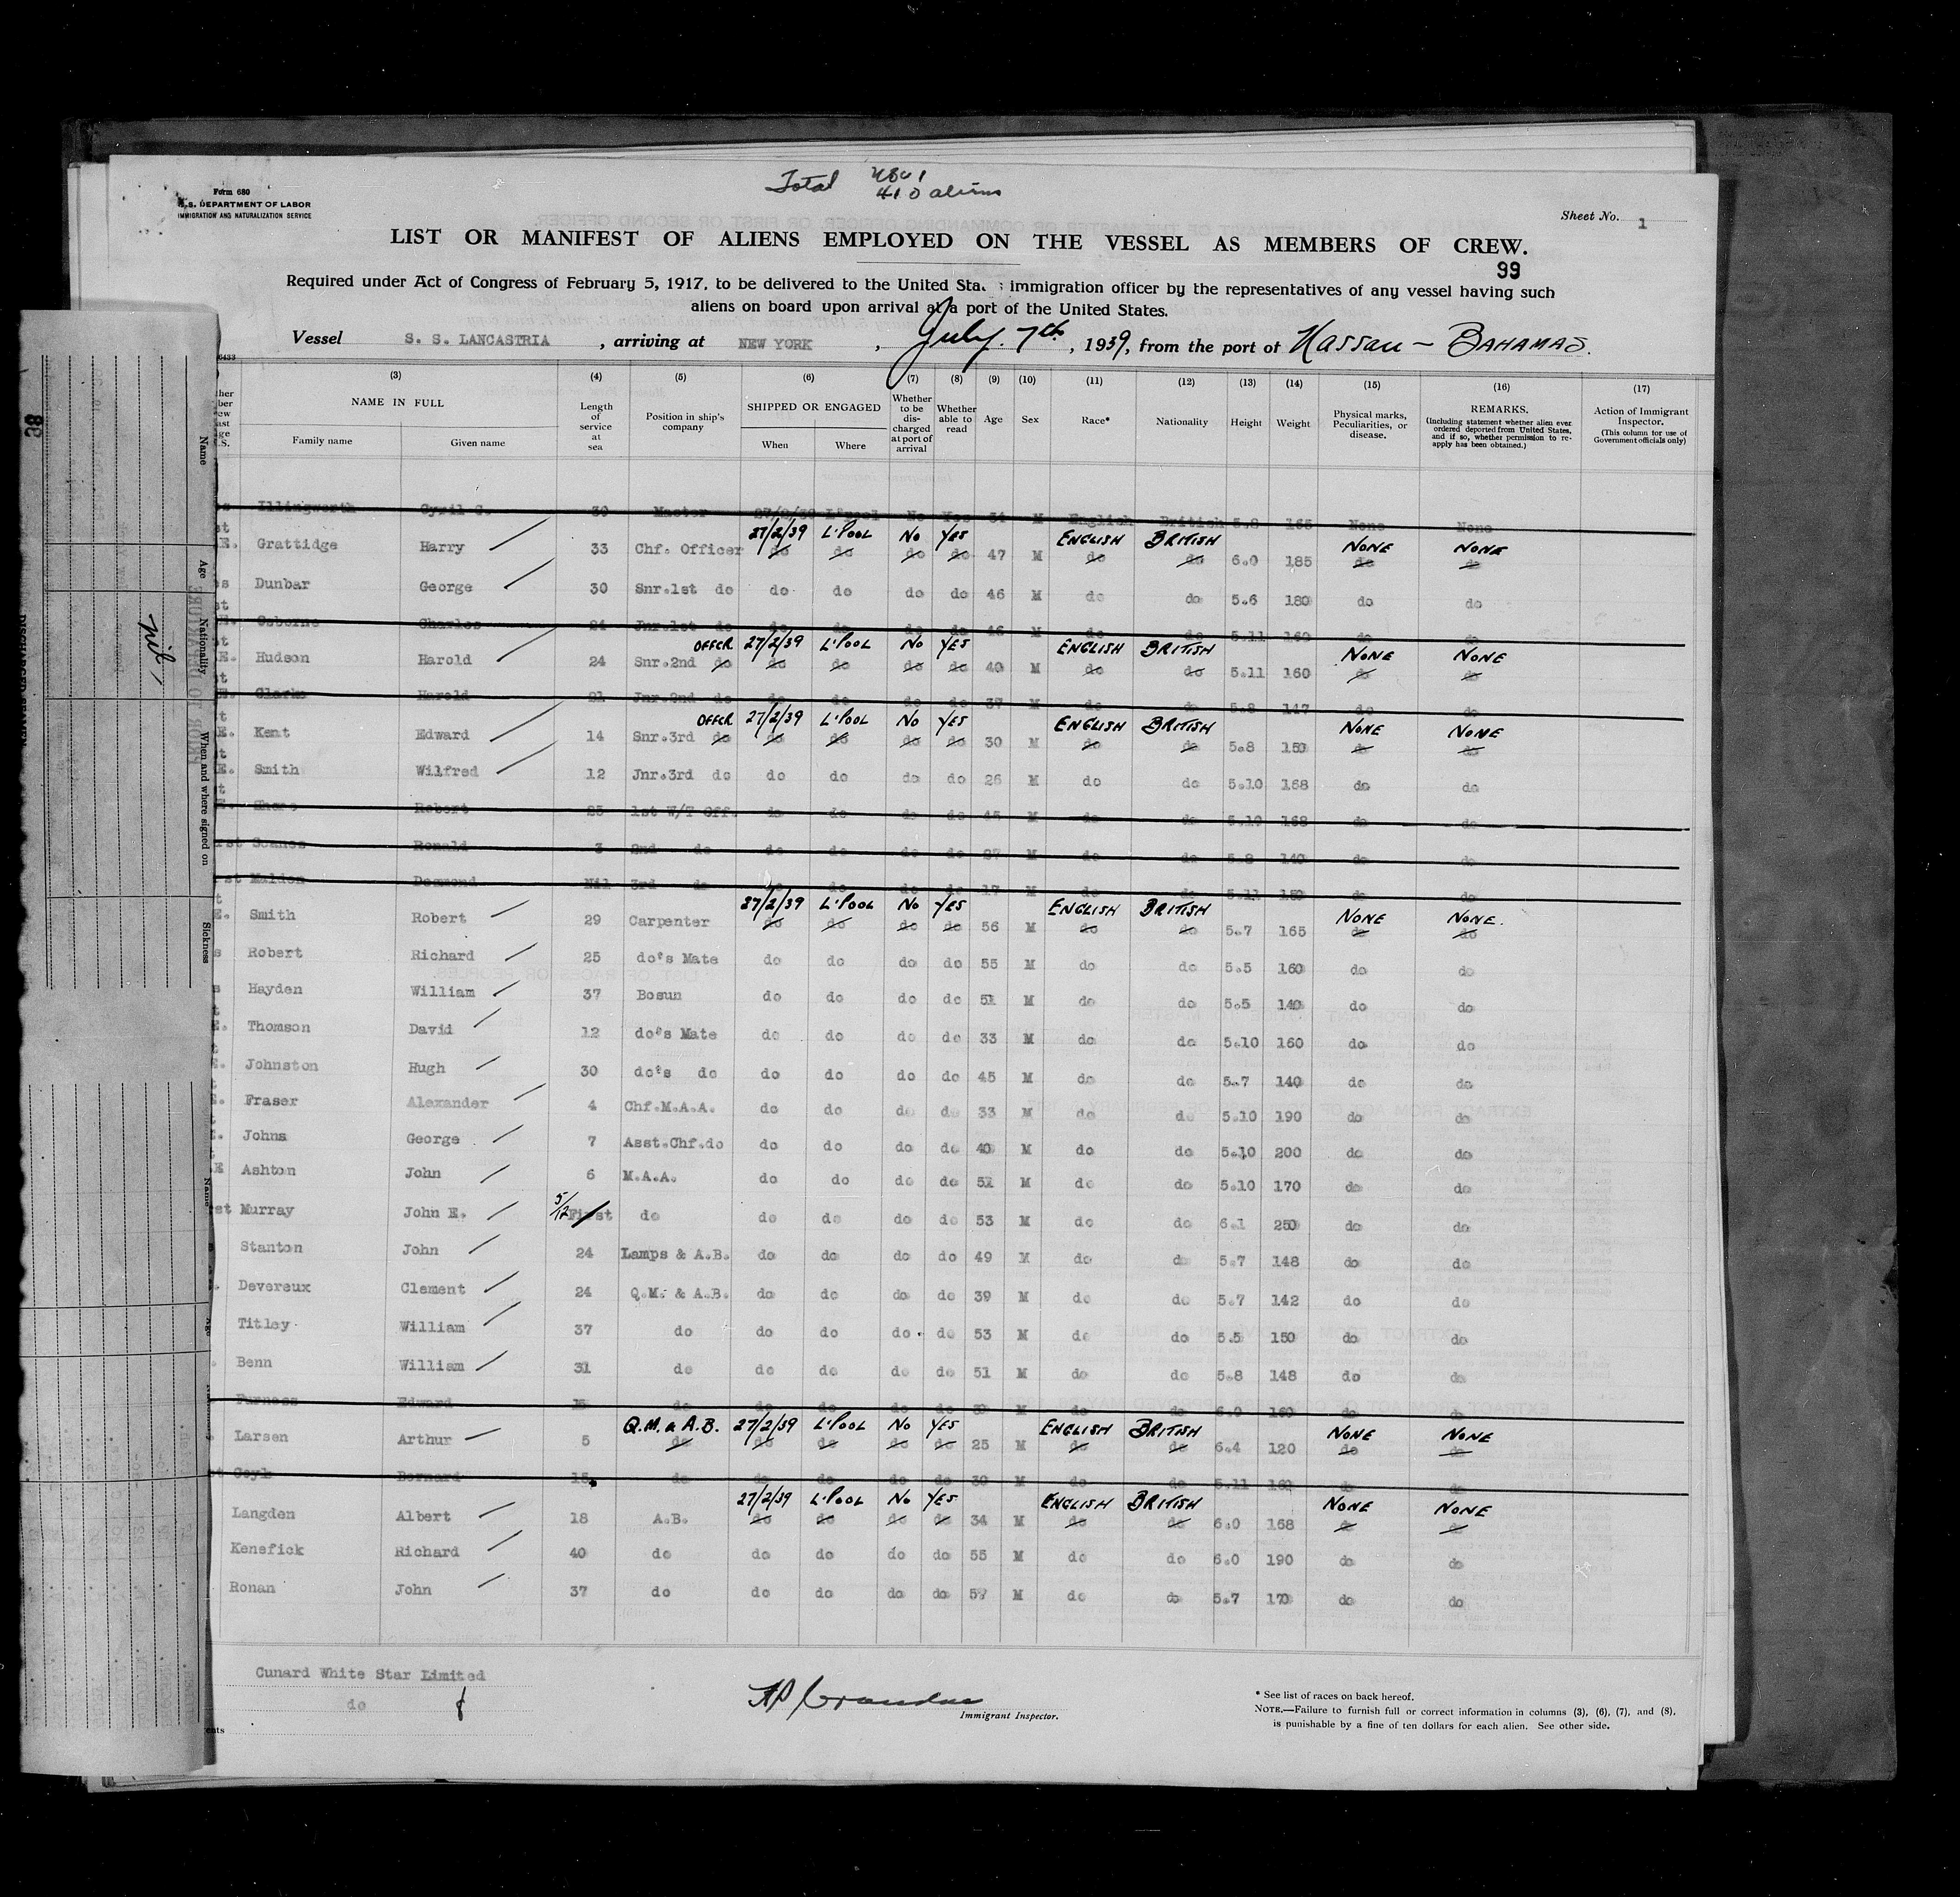 Total
410 aliens
Form 680
U.S. DEPARTMENT OF LABOR
IMMIGRATION AND NATURALIZATION SERVICE
Sheet No. 1
LIST OR MANIFEST OF ALIENS EMPLOYED ON THE VESSEL AS MEMBERS OF CREW.
99
Required under Act of Congress of February 5, 1917, to be delivered to the United Sta immigration officer by the representatives of any vessel having such
aliens on board upon arrival at a port of the United States.
Vessel S. S. LANCASTRIA, arriving at NEW YORK, July. 7th, 1939, from the port of Nassau - BAHAMAS.
(3) (4) (5) (6) (7) (8) (9) (10) (11) (12) (13) (14) (15) (16) (17)
NAME IN FULL Length of service at sea Position in ship's company SHIPPED OR ENGAGED Whether to be discharged at port of arrival Whether able to read Age Sex Race* Nationality Height Weight Physical marks, Peculiarities, or disease. REMARKS. (Including statement whether alien ever ordered deported from United States, and if so, whether permission to re-apply has been obtained.) Action of Immigrant Inspector. (This column for use of Government officials only)
Family name Given name When Where
Illingworth Cyril G. 39 Master 27/2/39 L'pool No Yes 54 M English British 5.8 165 None None
27/2/39 L'POOL NO YES ENGLISH BRITISH NONE NONE
Grattidge Harry 33 Chf. Officer do do do do 47 M do do 6.0 185 do do
Dunbar George 30 Snr.1st do do do do do 46 M do do 5.6 180 do do
Osborne Charles 24 Jnr.1st do do do do do 46 M do do 5.11 160 do do
OFFCR 27/2/39 L'POOL NO YES ENGLISH BRITISH NONE NONE
Hudson Harold 24 Snr.2nd do do do do do 40 M do do 5.11 160 do do
Clarke Harold 21 Jnr.2nd do do do do do 37 M do do 5.8 147 do do
OFFCR 27/2/39 L'POOL NO YES ENGLISH BRITISH NONE NONE
Kent Edward 14 Snr.3rd do do do do do 30 M do do 5.8 150 do do
Smith Wilfred 12 Jnr.3rd do do do do do 26 M do do 5.10 168 do do
Robert 25 1st W/T Off. do do do do 45 M do do 5.10 168 do do
Ronald 3 2nd do do do do do 27 M do do 140 do do
Maldon Desmond Nil 3rd do do do do do 17 M do do 5.11 150 do do
27/2/39 L'POOL NO YES ENGLISH BRITISH NONE NONE.
Smith Robert 29 Carpenter do do do do 56 M do do 5.7 165 do do
Robert Richard 25 do's Mate do do do do 55 M do do 5.5 160 do do
Hayden William 37 Bosun do do do do 51 M do do 5.5 140 do do
Thomson David 12 do's Mate do do do do 33 M do do 5.10 160 do do
Johnston Hugh 30 do's do do do do do 45 M do do 5.7 140 do do
Fraser Alexander 4 Chf.M.A.A. do do do do 33 M do do 5.10 190 do do
Johns George 7 Asst.Chf.do do do do do 40 M do do 5.10 200 do do
Ashton John 6 M.A.A. do do do do 51 M do do 5.10 170 do do
Murray John E. 5/12 First do do do do do 53 M do do 6.1 250 do do
Stanton John 24 Lamps & A.B. do do do do 49 M do do 5.7 148 do do
Devereux Clement 24 Q.M. & A.B. do do do do 39 M do do 5.7 142 do do
Titley William 37 do do do do do 53 M do do 5.5 150 do do
Benn William 31 do do do do do 51 M do do 5.8 148 do do
Furness Edward do do do do do M do do 6.0 160 do do
Q.M. & A.B. 27/2/39 L'POOL NO YES ENGLISH BRITISH NONE NONE
Larsen Arthur 5 do do do do do 25 M do do 6.4 120 do do
Bernard 15 do do do do do 30 M do do 5.11 160 do do
27/2/39 L'POOL NO YES ENGLISH BRITISH NONE NONE
Langden Albert 18 A.B. do do do do 34 M do do 6.0 168 do do
Kenefick Richard 40 do do do do do 55 M do do 6.0 190 do do
Ronan John 37 do do do do do M do do 5.7 170 do do
Cunard White Star Limited
do
Immigrant Inspector.
* See list of races on back hereof.
NOTE.—Failure to furnish full or correct information in columns (3), (6), (7), and (8),
is punishable by a fine of ten dollars for each alien. See other side.
Name
Age
Nationality
When and where signed on
Sickness
Name
nil